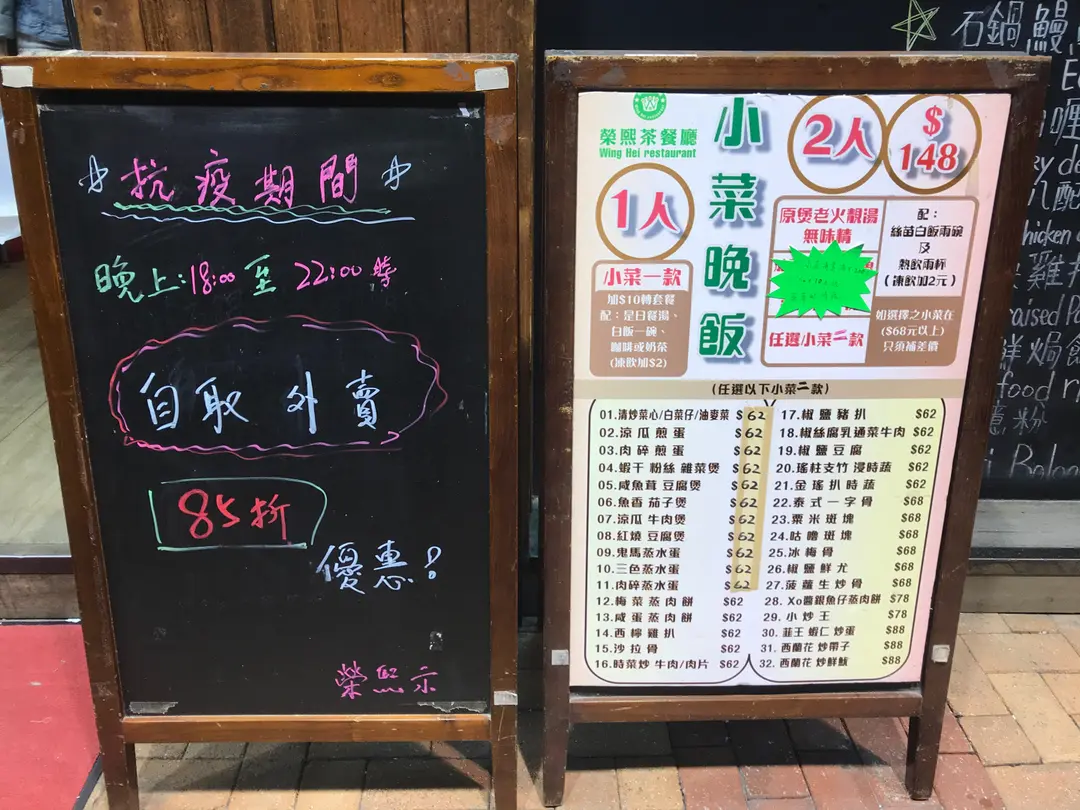 抗疫期間
晚上:18:00至22:00時
自取外賣
85折
優惠!
榮熙示
榮熙茶餐廳
Wing Hei restaurant
小菜晚飯
1人
小菜一款
加$10轉套餐
配：是日餐湯、
白飯一碗、
咖啡或奶茶
(凍飲加$2)
2人
$148
原煲老火靚湯
無味精
任選小菜二款
配：
絲苗白飯兩碗
及
熱飲兩杯
(凍飲加2元)
如選擇之小菜在
($68元以上)
只須補差價
(任選以下小菜二款)
01.清炒菜心/白菜仔/油麥菜 $62
02.涼瓜煎蛋 $62
03.肉碎煎蛋 $62
04.蝦干粉絲雜菜煲 $62
05.咸魚茸豆腐煲 $62
06.魚香茄子煲 $62
07.涼瓜牛肉煲 $62
08.紅燒豆腐煲 $62
09.鬼馬蒸水蛋 $62
10.三色蒸水蛋 $62
11.肉碎蒸水蛋 $62
12.梅菜蒸肉餅 $62
13.咸蛋蒸肉餅 $62
14.西檸雞扒 $62
15.沙拉骨 $62
16.時菜炒牛肉/肉片 $62
17.椒鹽豬扒 $62
18.椒絲腐乳通菜牛肉 $62
19.椒鹽豆腐 $62
20.瑤柱支竹浸時蔬 $62
21.金瑤扒時蔬 $62
22.泰式一字骨 $68
23.粟米斑塊 $68
24.咕嚕斑塊 $68
25.冰梅骨 $68
26.椒鹽鮮尤 $68
27.菠蘿生炒骨 $68
28.Xo醬銀魚仔蒸肉餅 $78
29.小炒王 $78
30.韮王蝦仁炒蛋 $88
31.西蘭花炒帶子 $88
32.西蘭花炒鮮魷 $88
石鍋鰻